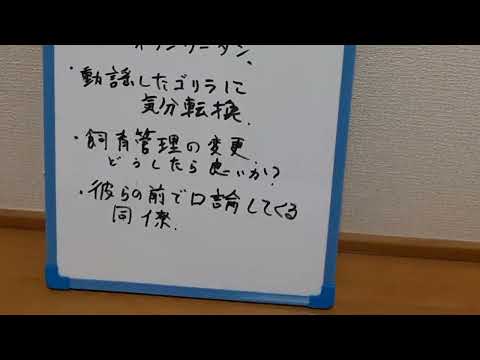 オランウータン、
・動謡したゴリラにて
気分転換.
・飼育管理の変更.
どうしたら良いか?
・彼らの前で口論してくる
同僚.